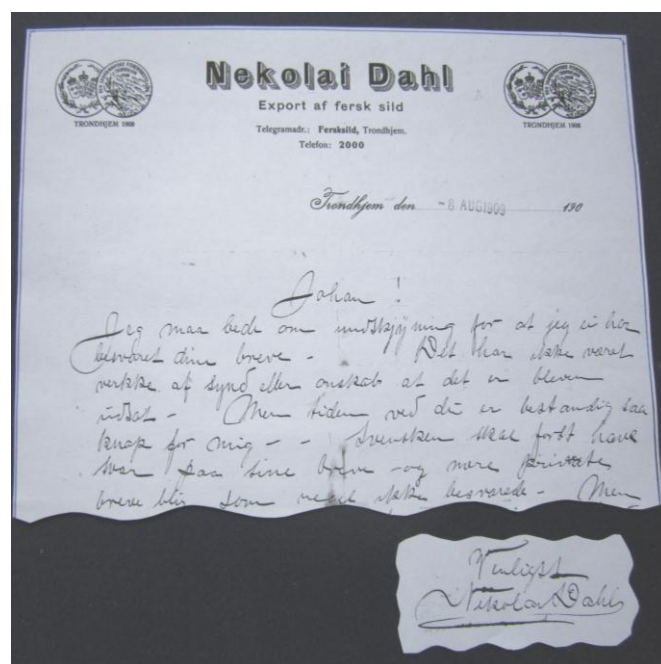 Nekolai Dahl
Export af fersk sild
Telegramadr.: Fersksild, Trondhjem.
Telefon: 2000
TRONDHJEM 1908
TRONDHJEM 1908
Trondhjem den -8 AUG 1909 190
Johan!
Jeg maa bede om undskyldning for at jeg ei har
besvaret dine breve - Det har ikke været
af synd eller onskab at det er bleven
udsat - Men tiden ved du er bestandig saa
knap for mig - - Svensken skal først have
svar paa sine breve - og mere private
breve blir som regel ikke besvarede - Men
Venligst
Nikolai Dahl